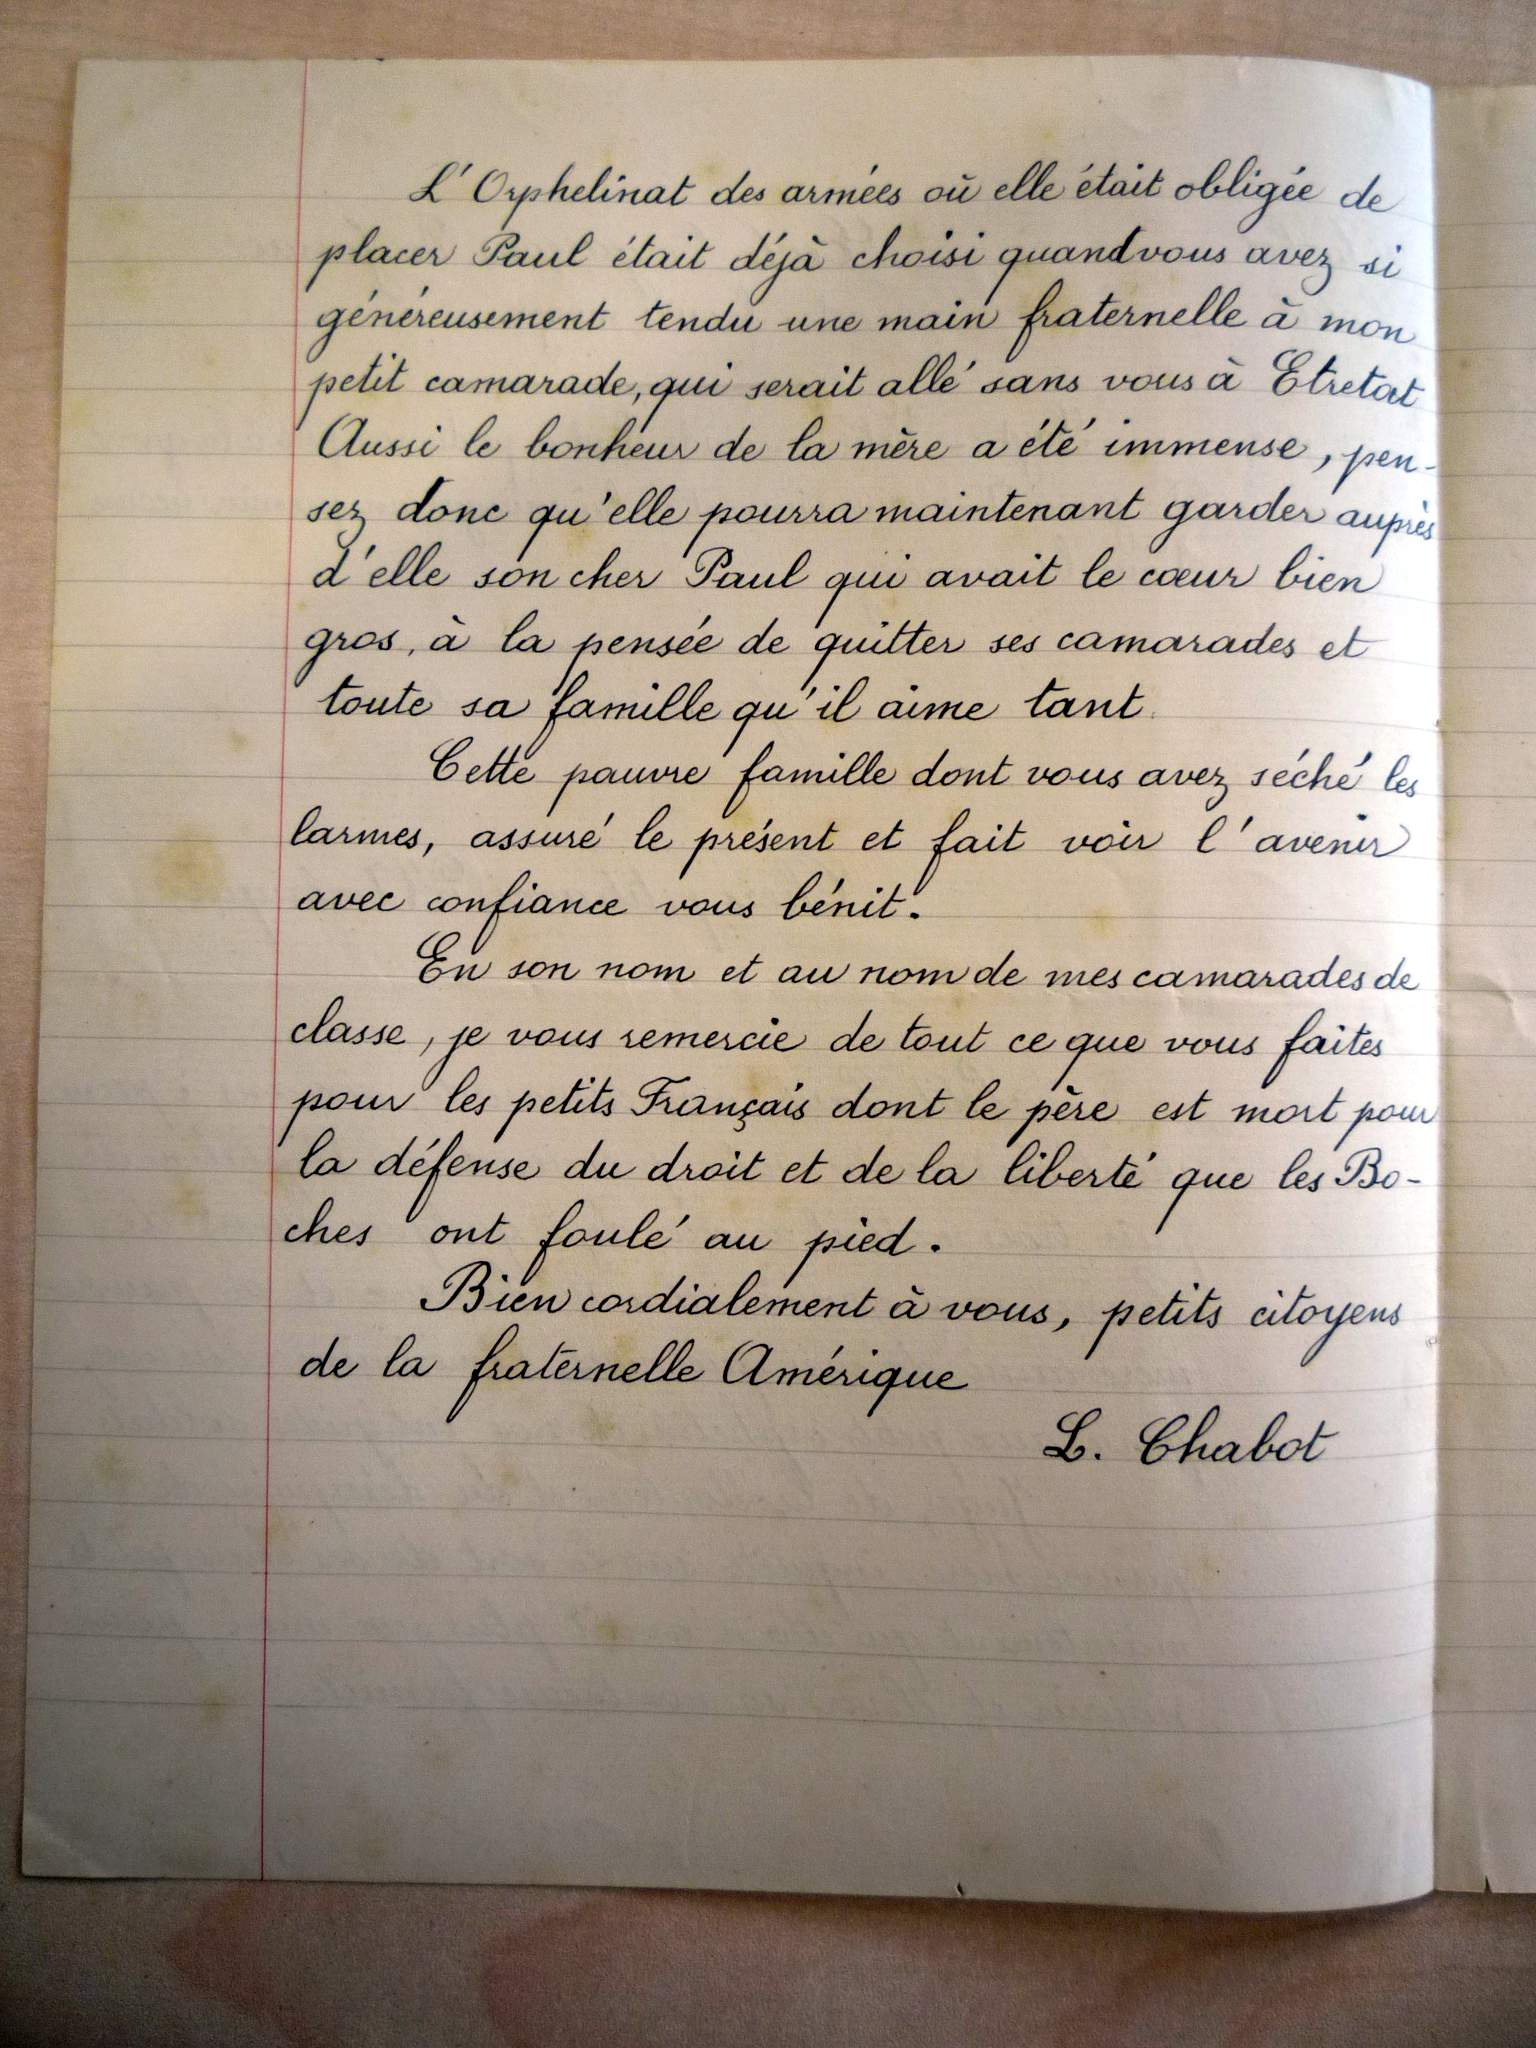 L'Orphelinat des armées où elle était obligée de
placer Paul était déjà choisi quand vous avez si
généreusement tendu une main fraternelle à mon
petit camarade, qui serait allé sans vous à Etretat
Aussi le bonheur de la mère a été immense, pen-
sez donc qu'elle pourra maintenant garder auprès
d'elle son cher Paul qui avait le cœur bien
gros, à la pensée de quitter ses camarades et
toute sa famille qu'il aime tant.
Cette pauvre famille dont vous avez séché les
larmes, assuré le présent et fait voir l'avenir
avec confiance vous bénit.
En son nom et au nom de mes camarades de
classe, je vous remercie de tout ce que vous faites
pour les petits Français dont le père est mort pour
la défense du droit et de la liberté que les Bo-
ches ont foulé au pied.
Bien cordialement à vous, petits citoyens
de la fraternelle Amérique
L. Chabot